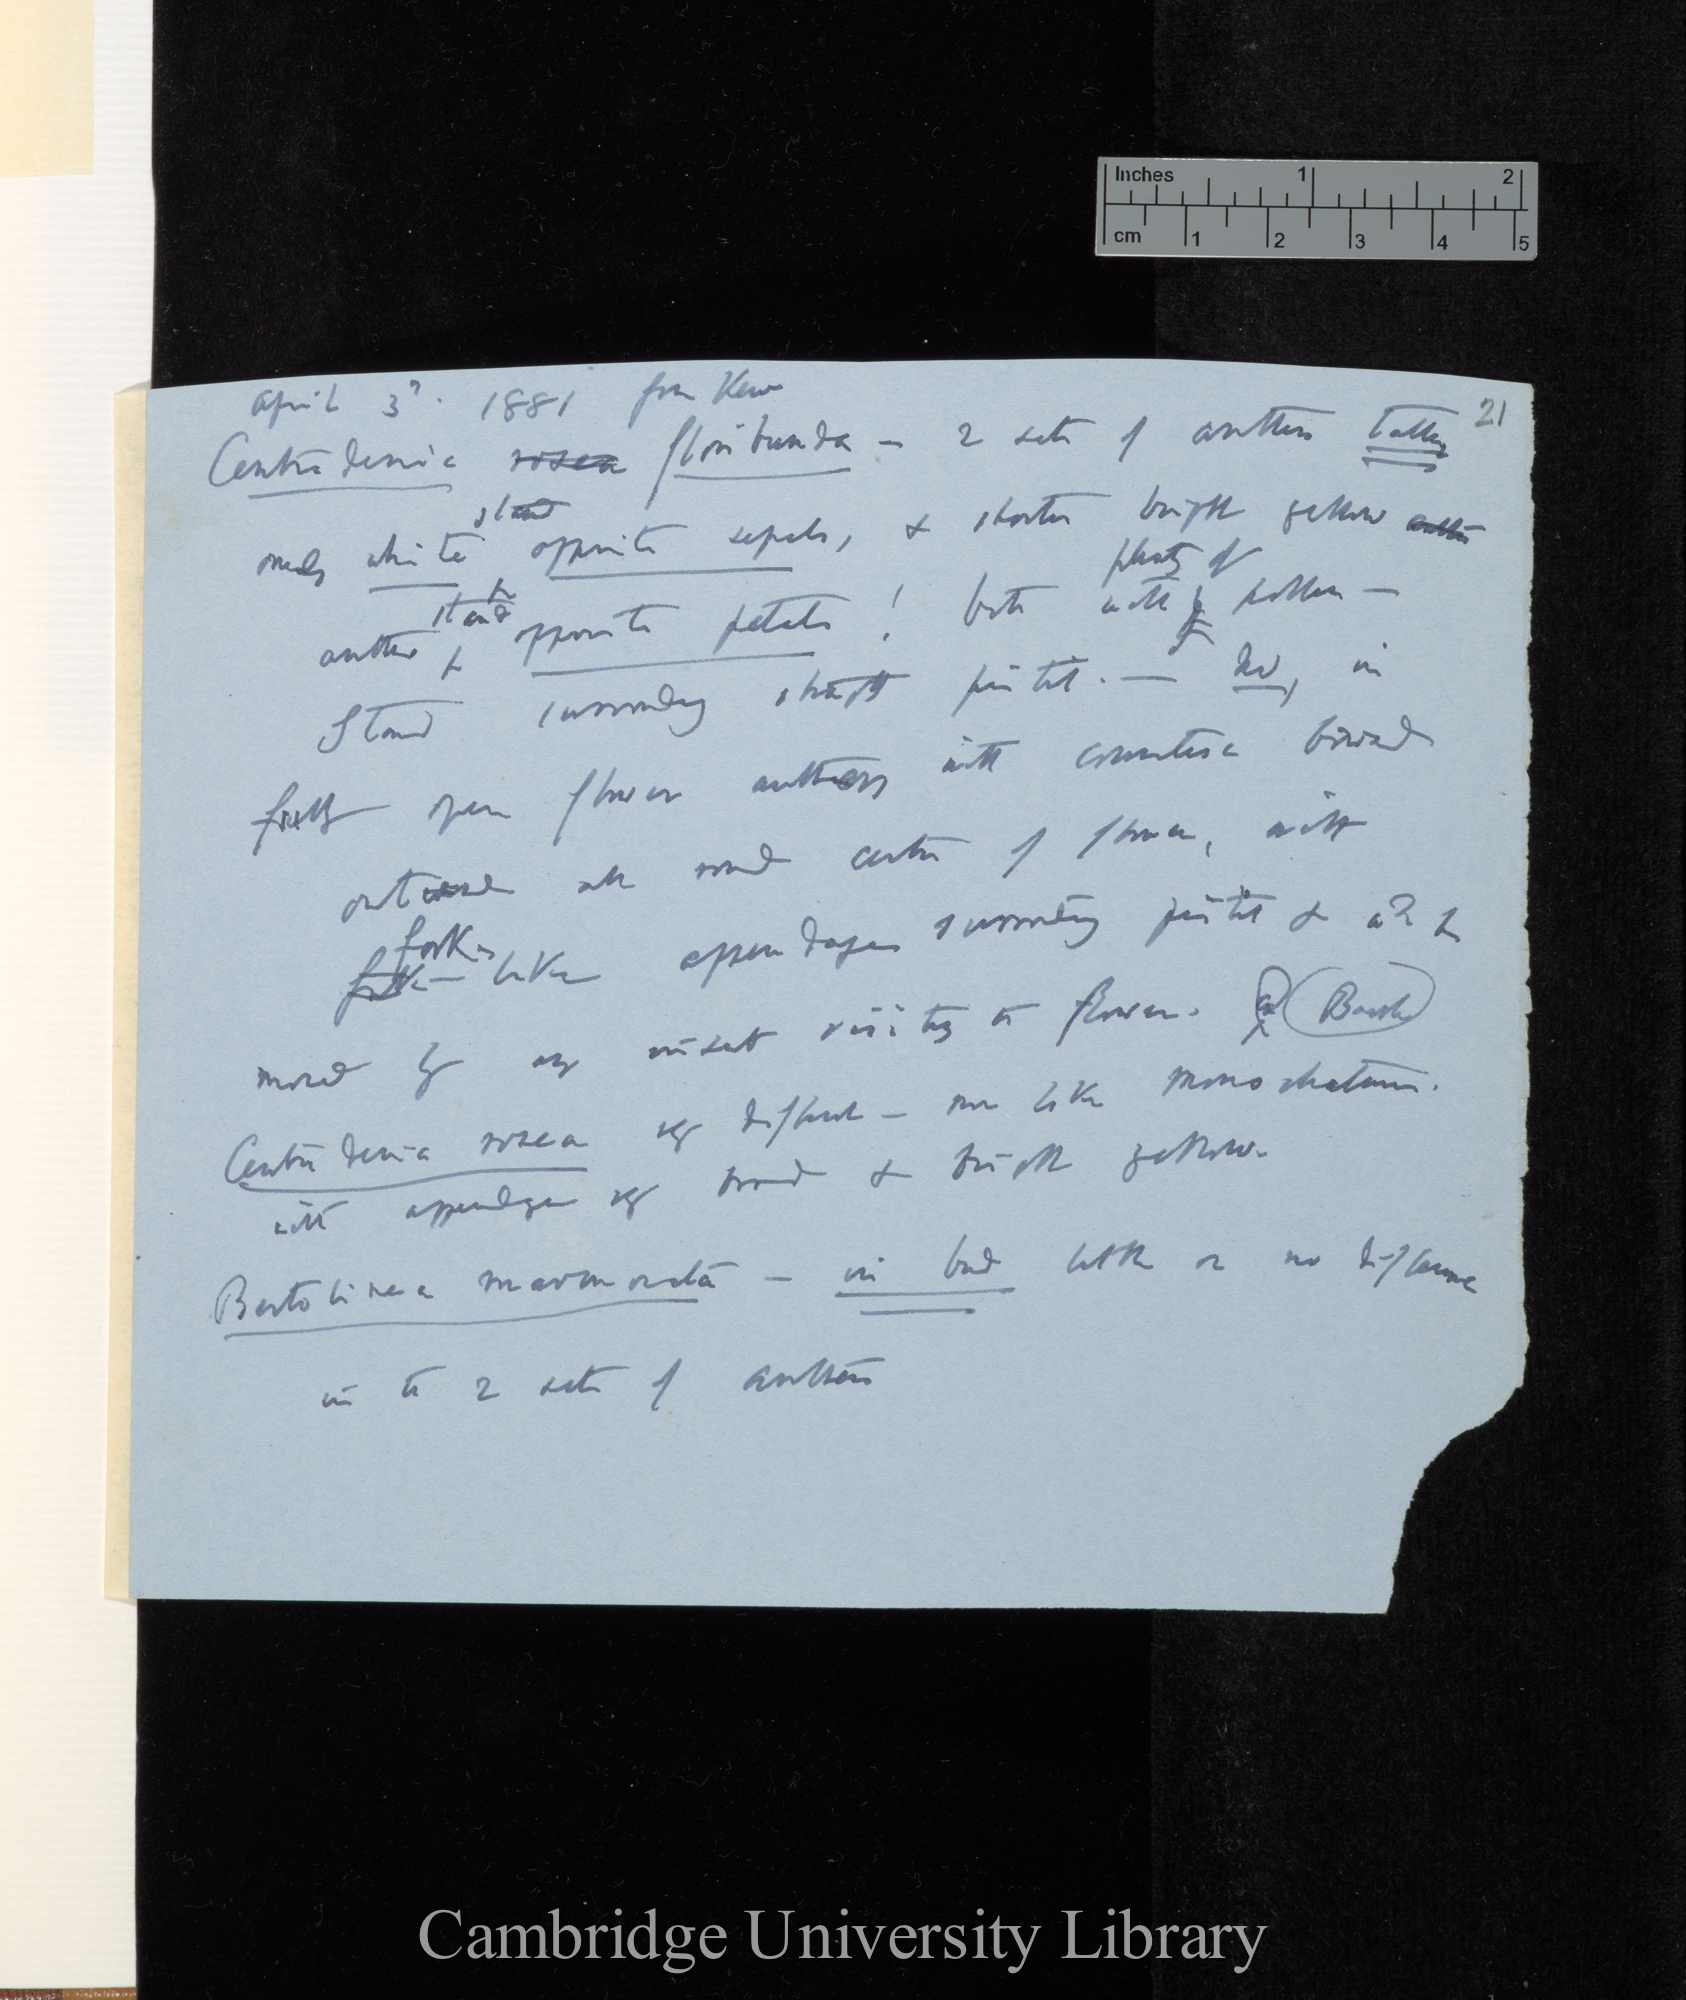 Inches 1 2
cm 1 2 3 4 5
21
April 3d. 1881 from Kew
Centradenia rosea floribunda — 2 sets of anthers taller
ones white stand opposite sepals, & shorter bright yellow anthers
anthers stand opposite petals! both with plenty of pollen —
Stand surrounding straight pistil. — bud, in
fully open flower anthers with connective
outward all round centre of flower, with
fork-like appendages surrounding pistil & wd be
moved by any insect visiting the flower. (Back)
Centradenia rosea very different — more like monochaetum.
with appendages very broad & bright yellow.
Bertolinea marmorata — in bud little or no difference
in the 2 sets of anthers
Cambridge University Library